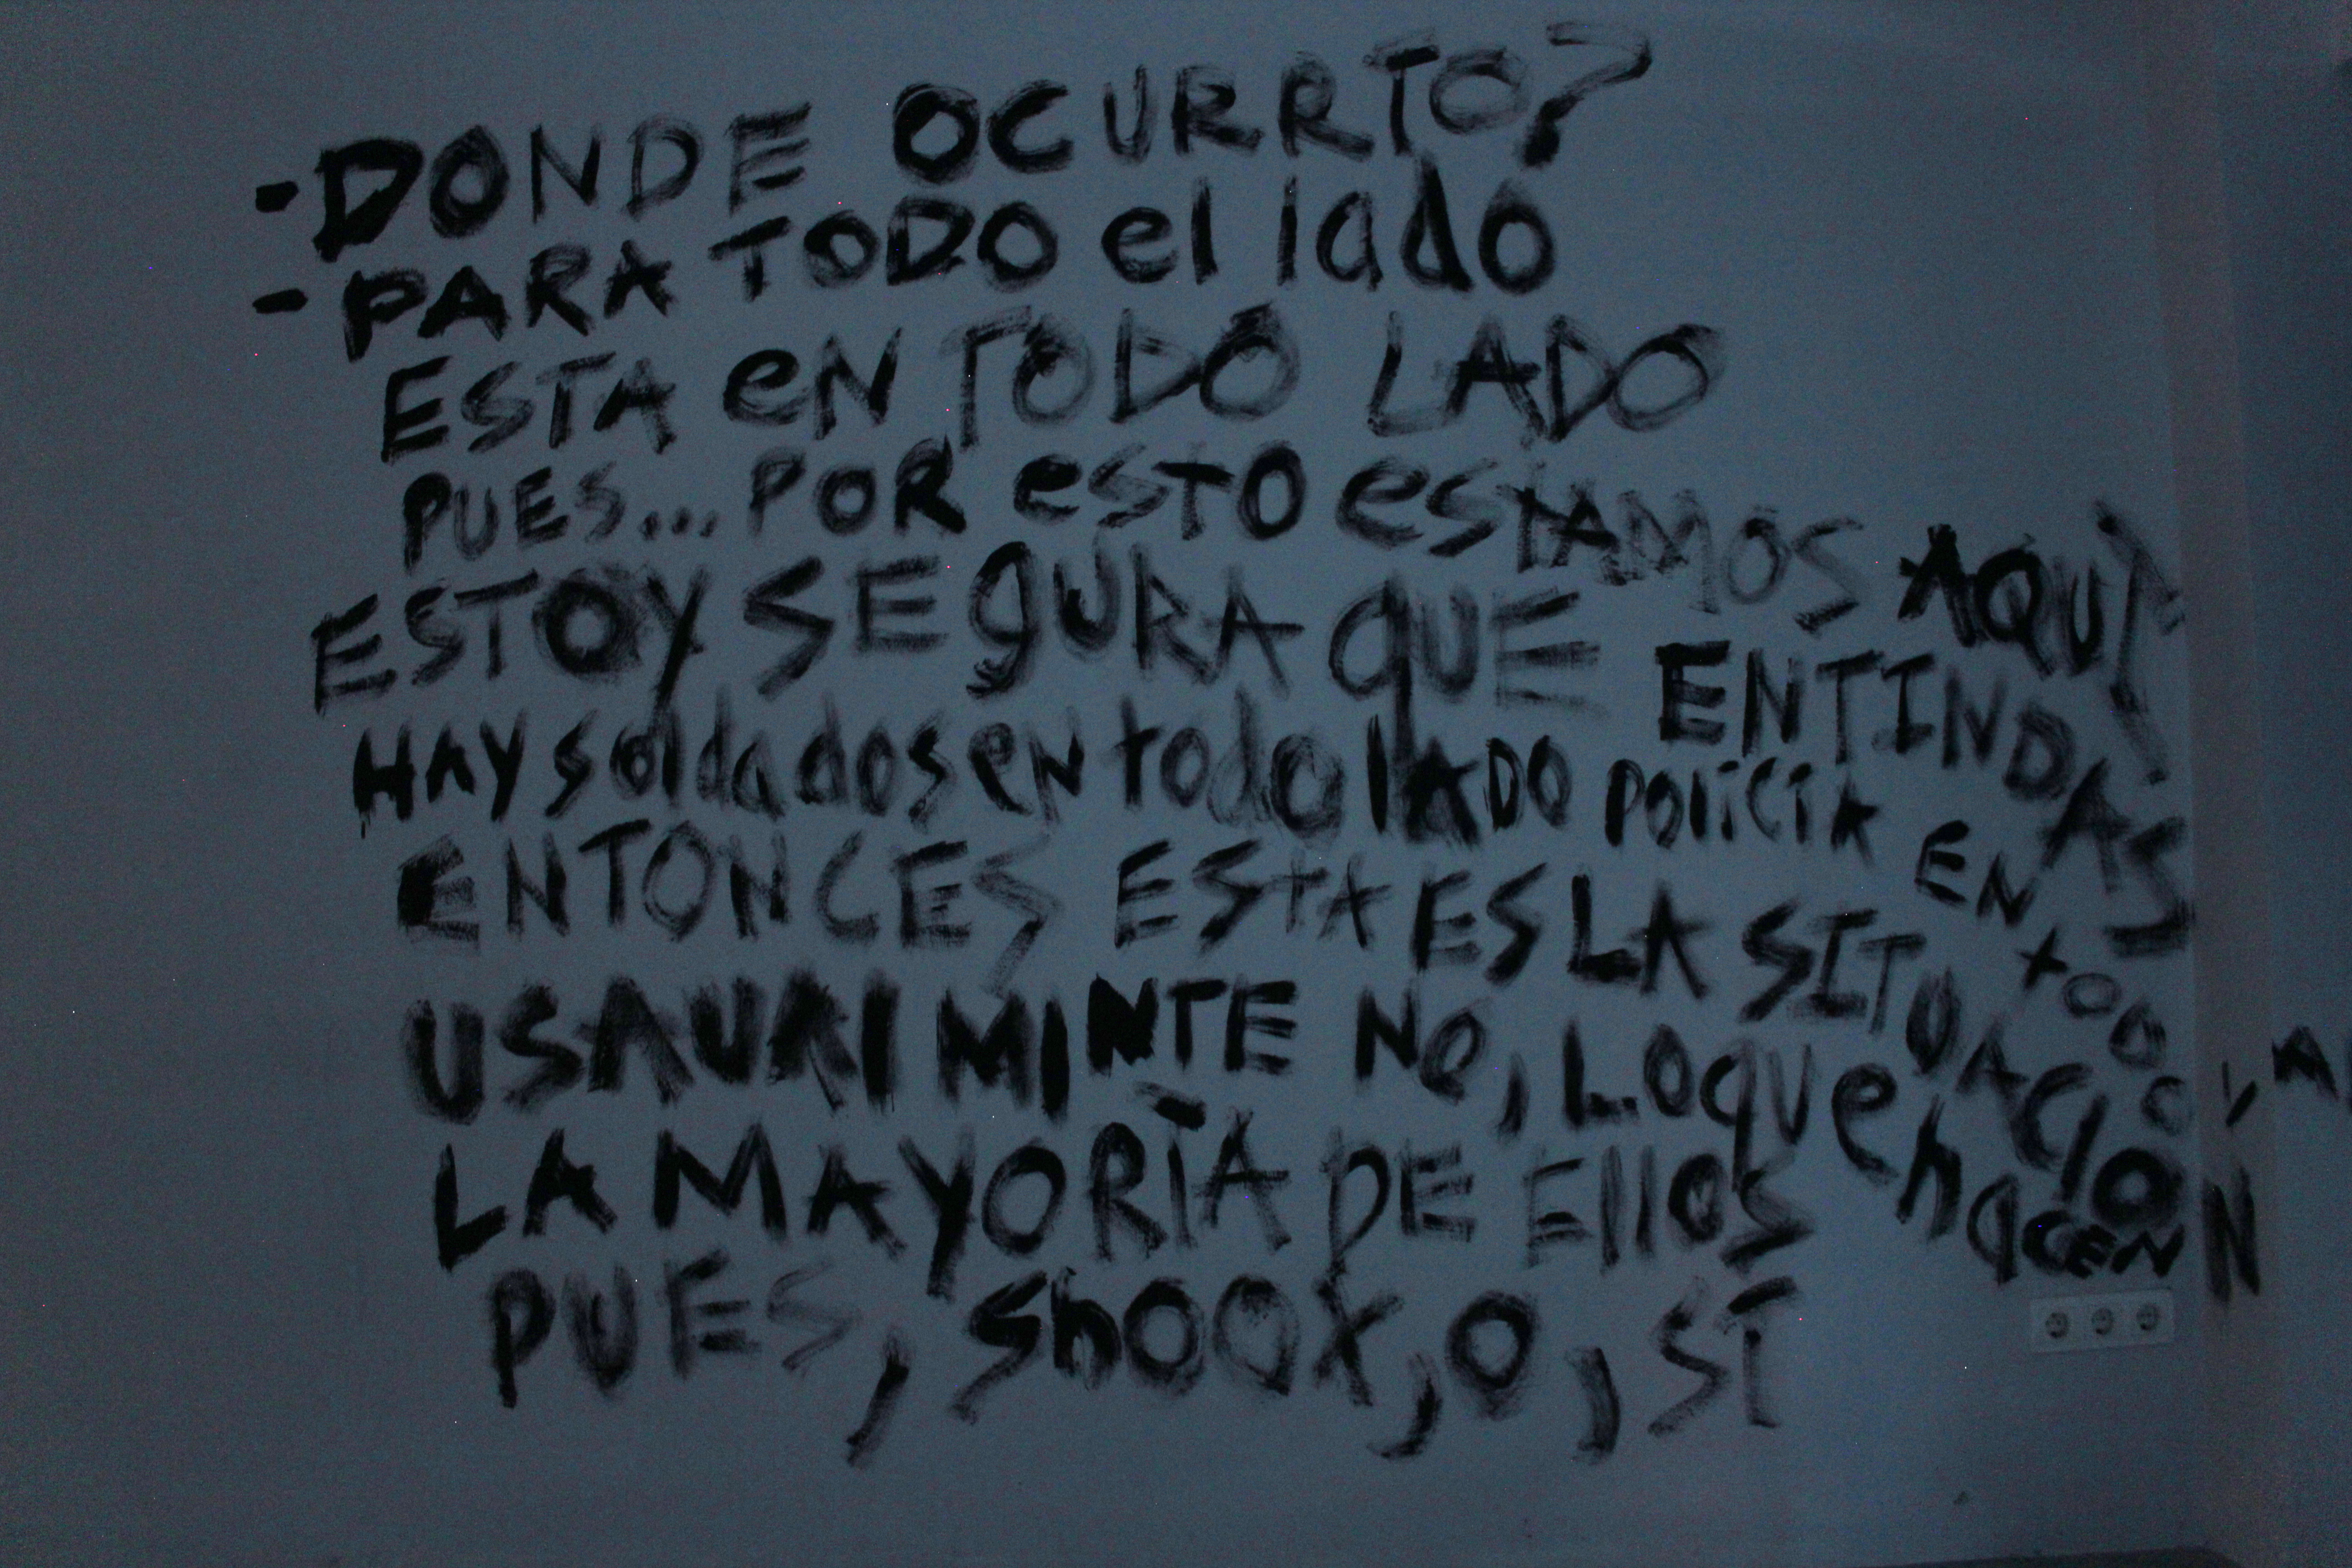 -DONDE OCURRIO?
-PARA TODO el lado
ESTA eN TODO LADO
PUES... POR esto estAMOS AQUÍ
ESTOY SEgURA qUE ENTINDAS
HAY soldados en todo lADO POliCiA EN todo LA
ENTONCES ESTA ES LA SITUACION
USAURIMINTE NO, LO que hacEN
LA MAYORÌA DE EllOS
PUES, Shoot, O, SI